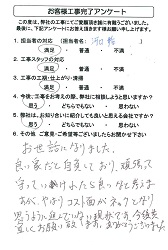 お客様工事完了アンケート
この度は、弊社の工事にてご愛顧頂き誠に有難うございました。
最後に、下記にアンケートをお答え頂きます様お願い申し上げます。
1. 担当者の対応（担当者名：
満足 普通 不満
2. 工事スタッフの対応
満足 普通 不満
3. 工事の工期・仕上がり・清掃
満足 普通 不満
4. 今後、ご工事をお考えの際、弊社に声を掛けようと思いますか？
思う どちらでもない 思わない
5. 弊社は、お知り合いに紹介しても良いと思える会社ですか？
思う どちらでもない 思わない
6. その他、ご意見・ご希望等ございましたらお聞かせ下さい
お世話になりました。
良い家だと自負しており、頑張って
守って いければと思
が、やはり コスト面が
思うように進んでいない現状です。今後共
宜しくお願い致します。